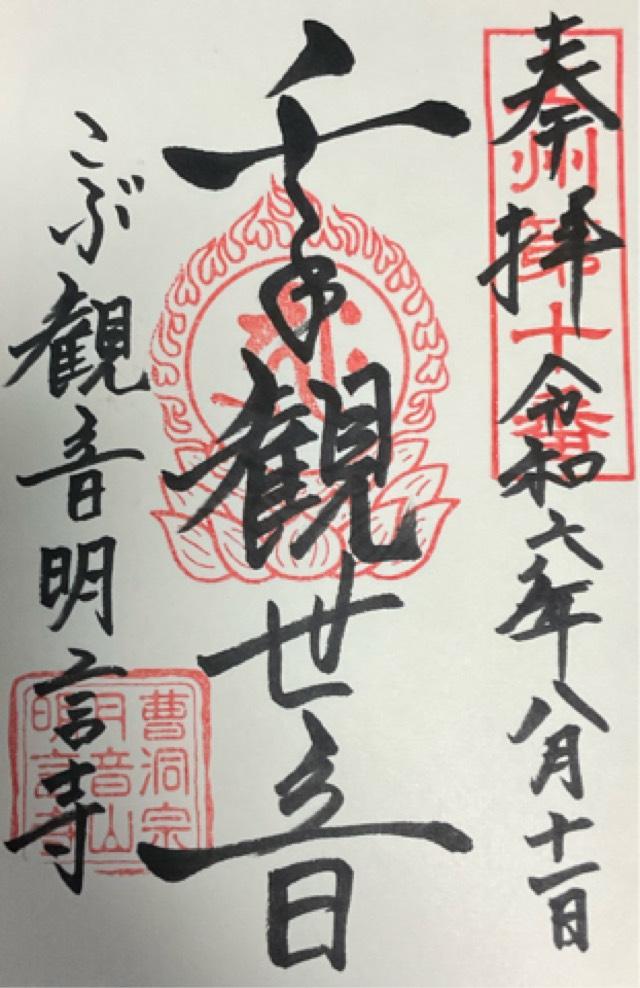 奉拝 令和六年八月十一日
州第十番
千手観世音
こぶ観音明言寺
曹洞宗
月音山
明言寺